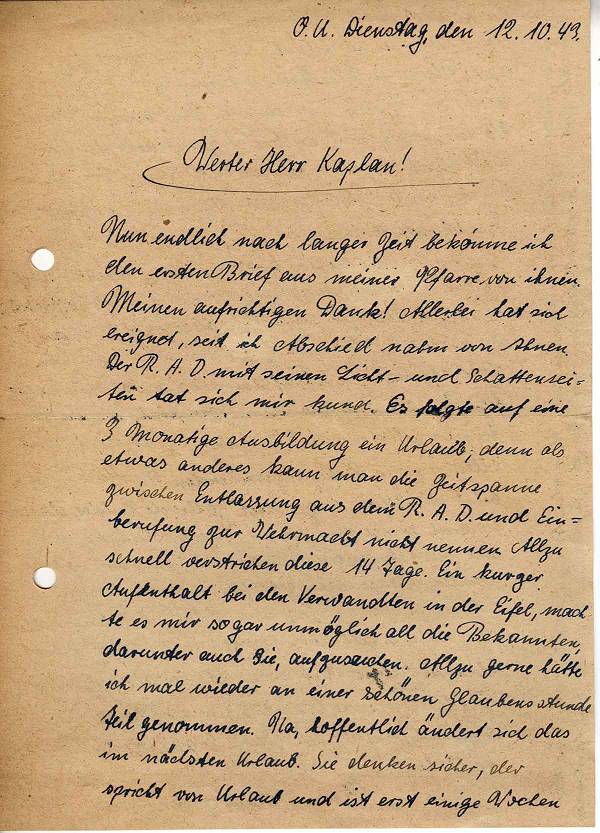 O.U. Dienstag, den 12.10.43.
Werter Herr Kaplan!
Nun endlich nach langer Zeit bekomme ich
den ersten Brief aus meiner Pfarre von ihnen.
Meinen aufrichtigen Dank! Allerlei hat sich
ereignet, seit ich Abschied nahm von Ihnen.
Der R.A.D. mit seinen Licht- und Schattensei-
ten tat sich mir kund. Es folgte auf eine
3 Monatige Ausbildung ein Urlaub, denn als
etwas anderes kann man die Zeitspanne
zwischen Entlassung aus dem R.A.D. und Ein=
berufung zur Wehrmacht nicht nennen. Allzu
schnell verstrichen diese 14 Tage. Ein kurzer
Aufenthalt bei den Verwandten in der Eifel, mach-
te es mir sogar unmöglich all die Bekannten,
darunter auch Sie, aufzusuchen. Allzu gerne hätte
ich mal wieder an einer schönen Glaubensstunde
teil genommen. Na, hoffentlich ändert sich das
im nächsten Urlaub. Sie denken sicher, der
spricht von Urlaub und ist erst einige Wochen